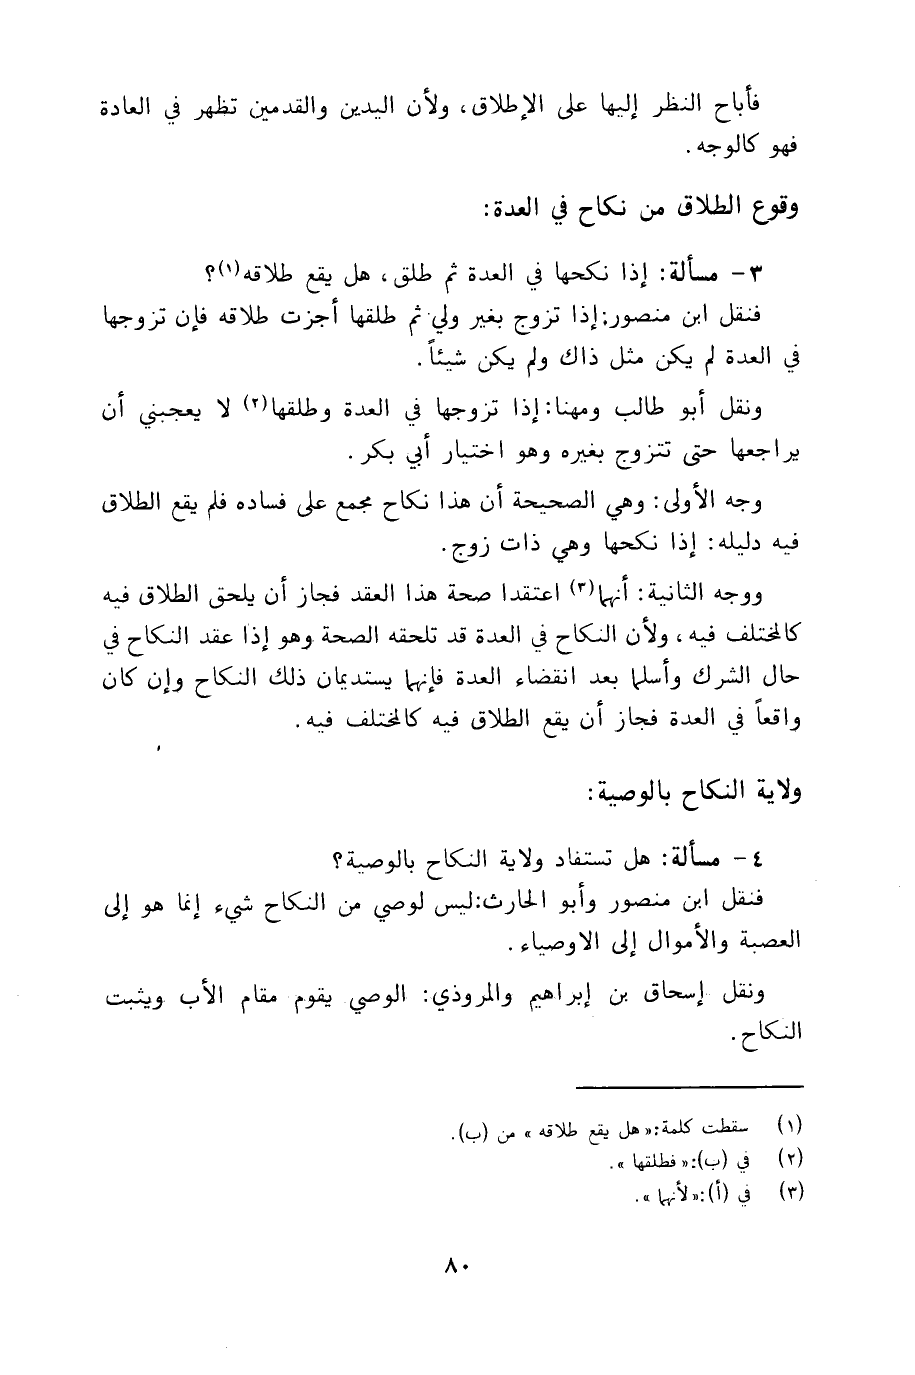 فأباح النظر إليها على الإطلاق، ولأن اليدين والقدمين تظهر في العادة
فهو كالوجه.
وقوع الطلاق من نكاح في العدة:
٣- مسألة: إذا نكحها في العدة ثم طلق، هل يقع طلاقه(١)؟
فنقل ابن منصور: إذا تزوج بغير ولي ثم طلقها أجزت طلاقه فإن تزوجها
في العدة لم يكن مثل ذاك ولم يكن شيئاً.
ونقل أبو طالب ومهنا: إذا تزوجها في العدة وطلقها(٢) لا يعجبني أن
يراجعها حتى تتزوج بغيره وهو اختيار أبي بكر.
وجه الأولى: وهي الصحيحة أن هذا نكاح مجمع على فساده فلم يقع الطلاق
فيه دليله: إذا نكحها وهي ذات زوج.
ووجه الثانية: أنهما(٣) اعتقدا صحة هذا العقد فجاز أن يلحق الطلاق فيه
كالمختلف فيه، ولأن النكاح في العدة قد تلحقه الصحة وهو إذا عقد النكاح في
حال الشرك وأسلما بعد انقضاء العدة فإنهما يستديمان ذلك النكاح وإن كان
واقعاً في العدة فجاز أن يقع الطلاق فيه كالمختلف فيه.
ولاية النكاح بالوصية:
٤- مسألة: هل تستفاد ولاية النكاح بالوصية؟
فنقل ابن منصور وأبو الحارث: ليس لوصي من النكاح شيء إنما هو إلى
العصبة والأموال إلى الاوصياء.
ونقل إسحاق بن إبراهيم والمروذي: الوصي يقوم مقام الأب ويثبت
النكاح.
(١) سقطت كلمة: «هل يقع طلاقه» من (ب).
(٢) في (ب): «فطلقها».
(٣) في (أ): «لأنهما».
٨٠